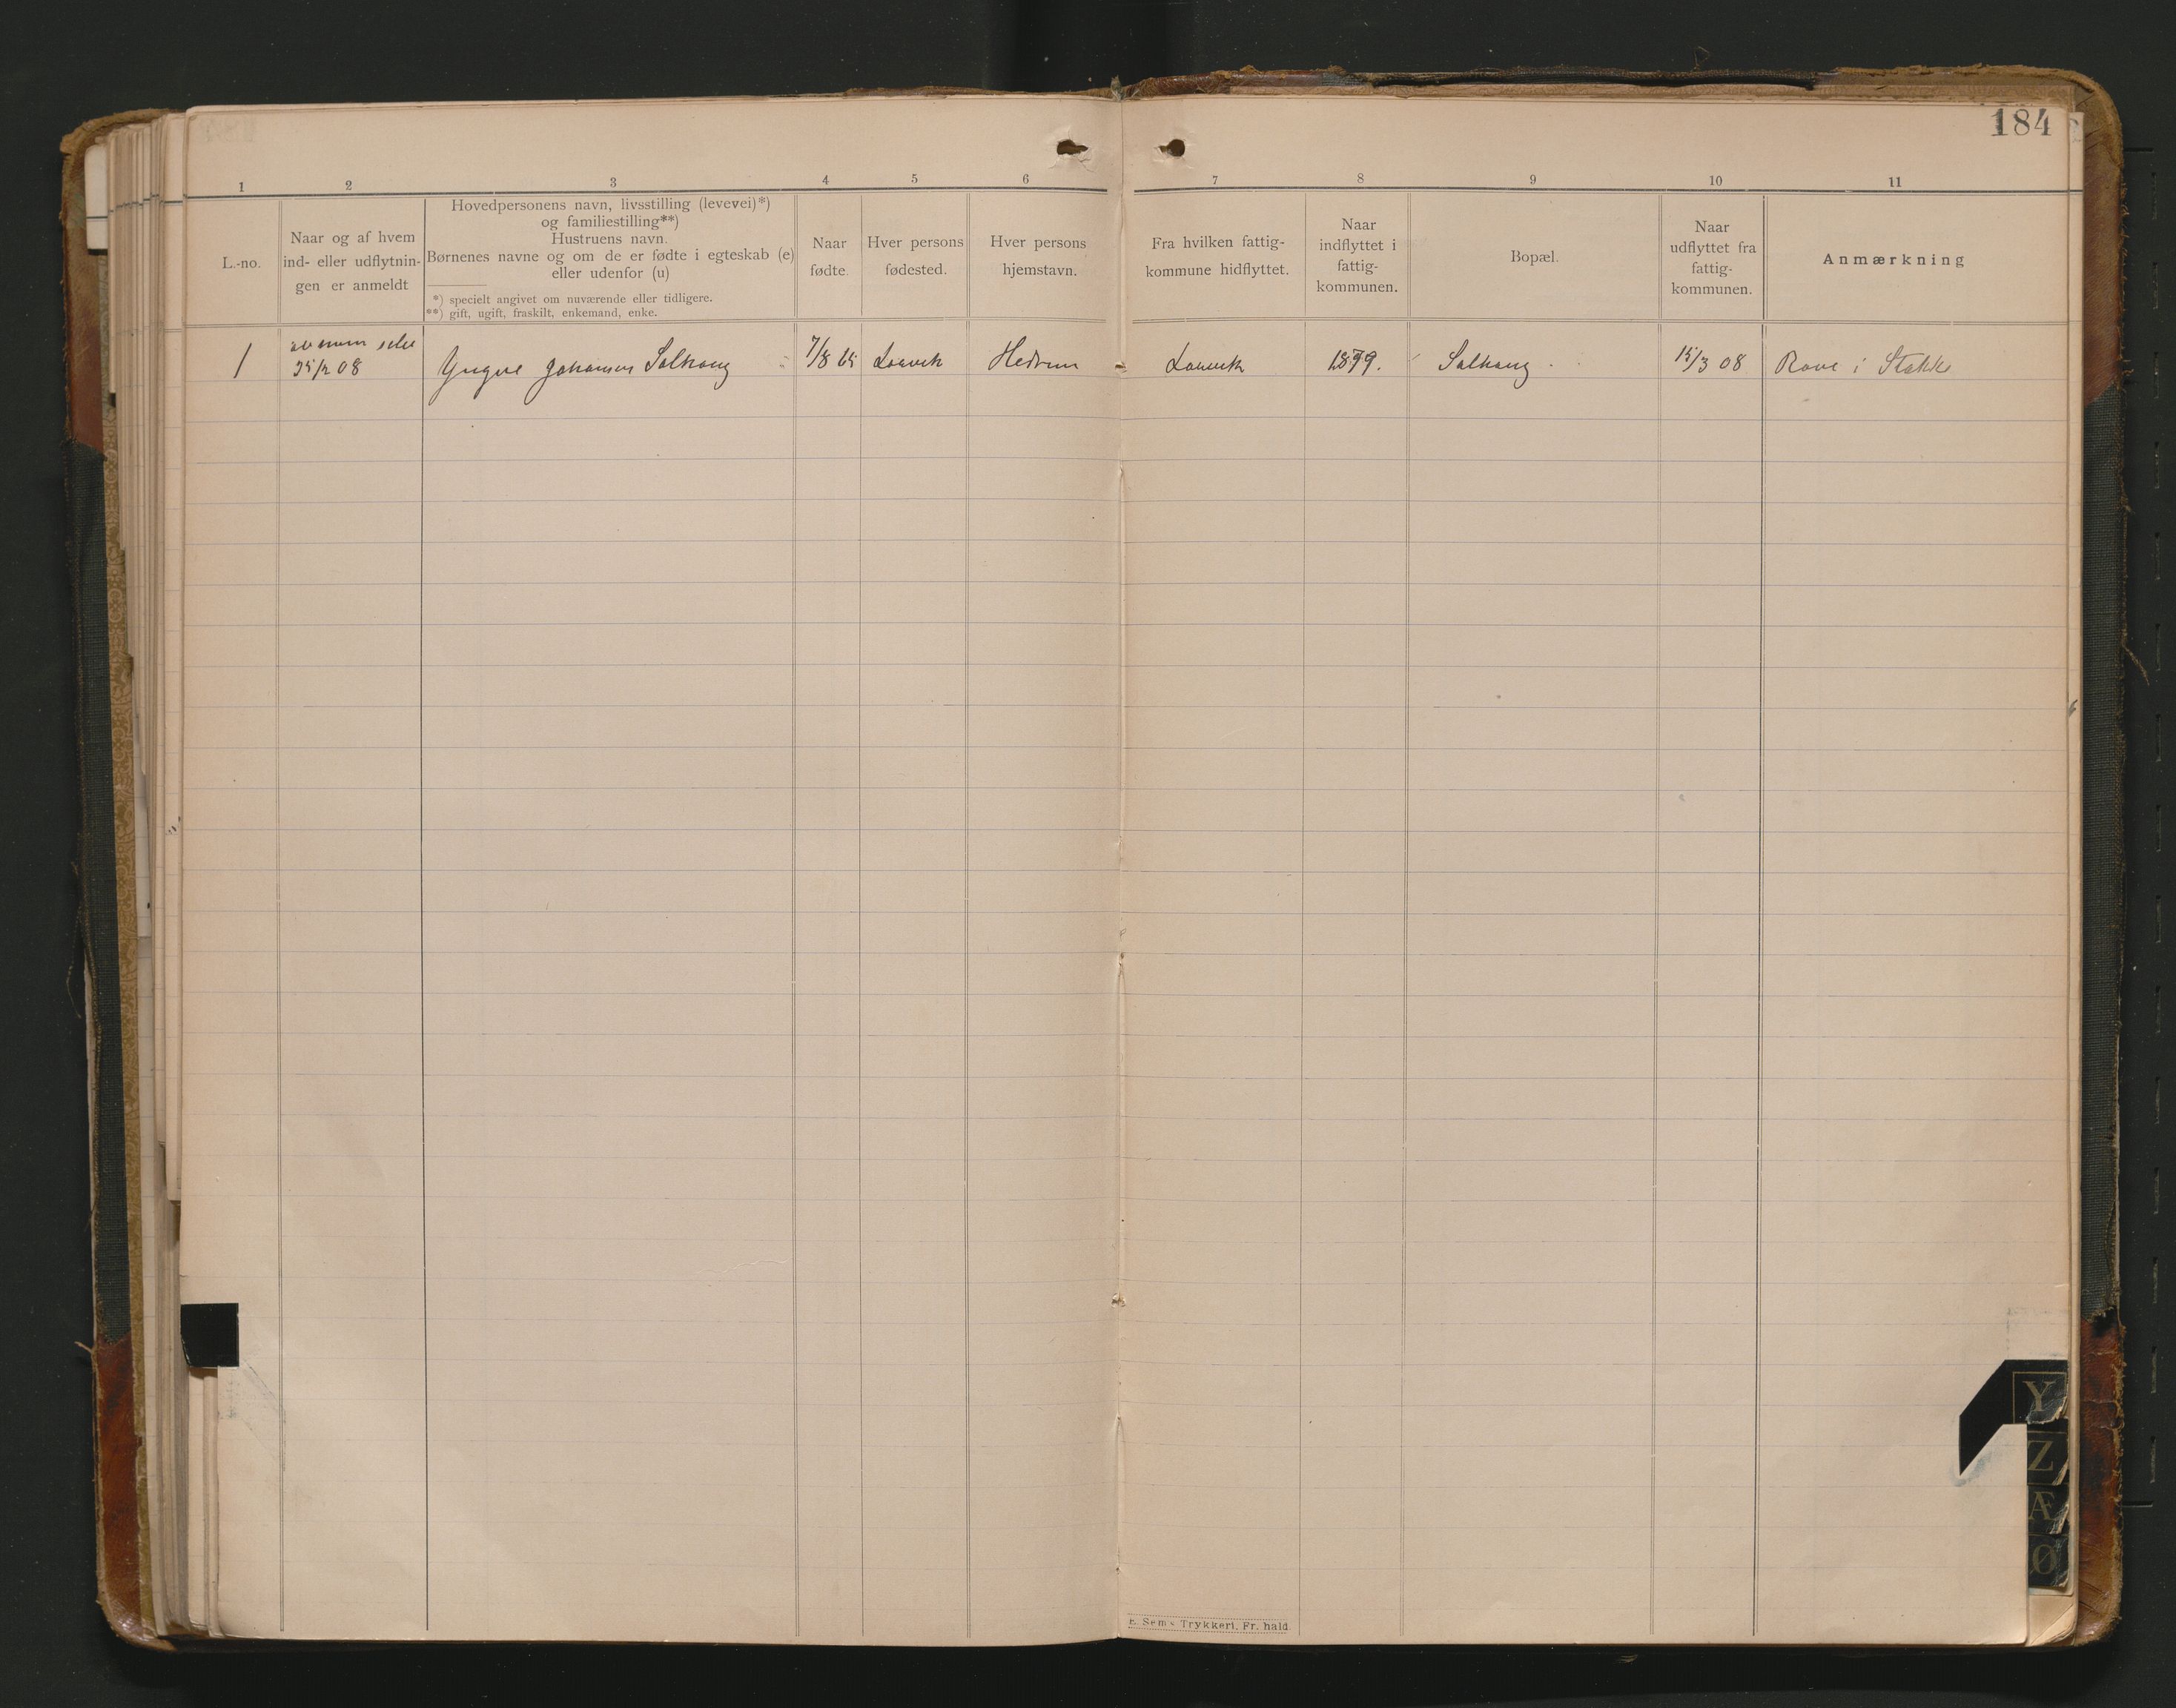 184
1 2 3 4 5 6 7 8 9 10 11
L.-no.
Naar og af hvem
ind- eller udflytnin-
gen er anmeldt
Hovedpersonens navn, livsstilling (levevei)*)
og familiestilling**)
Hustruens navn.
Børnenes navne og om de er fødte i egteskab (e)
eller udenfor (u)
*) specielt angivet om nuværende eller tidligere.
**) gift, ugift, fraskilt, enkemand, enke.
Naar
fødte.
Hver persons
fødested.
Hver persons
hjemstavn.
Fra hvilken fattig-
kommune hidflyttet.
Naar
indflyttet i
fattig-
kommunen.
Bopæl.
Naar
udflyttet fra
fattig-
kommunen.
Anmærkning
1
08
Yngve Johansen Solhaug
7/8 65
Laurvik
Hedrum
Laurvik
1879.
Solhaug
15/3 08
Rove i Stokke
Y
Z
Æ
Ø
E. Sem's Trykkeri, Fr.hald